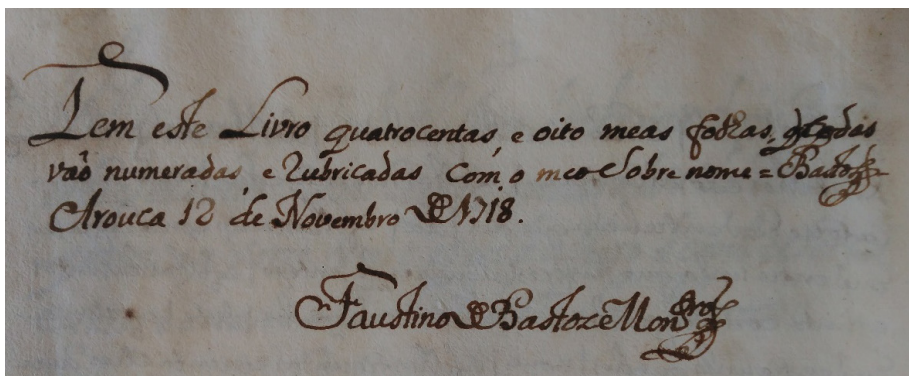 Tem este Livro quatrocentas, e oito meas folhas, q̃ todas
vaõ numeradas, e Rubricadas Com o meo Sobre nome = Bastos =
Arouca 12 de Novembro de 1718.
Faustino de Bastos e Monro